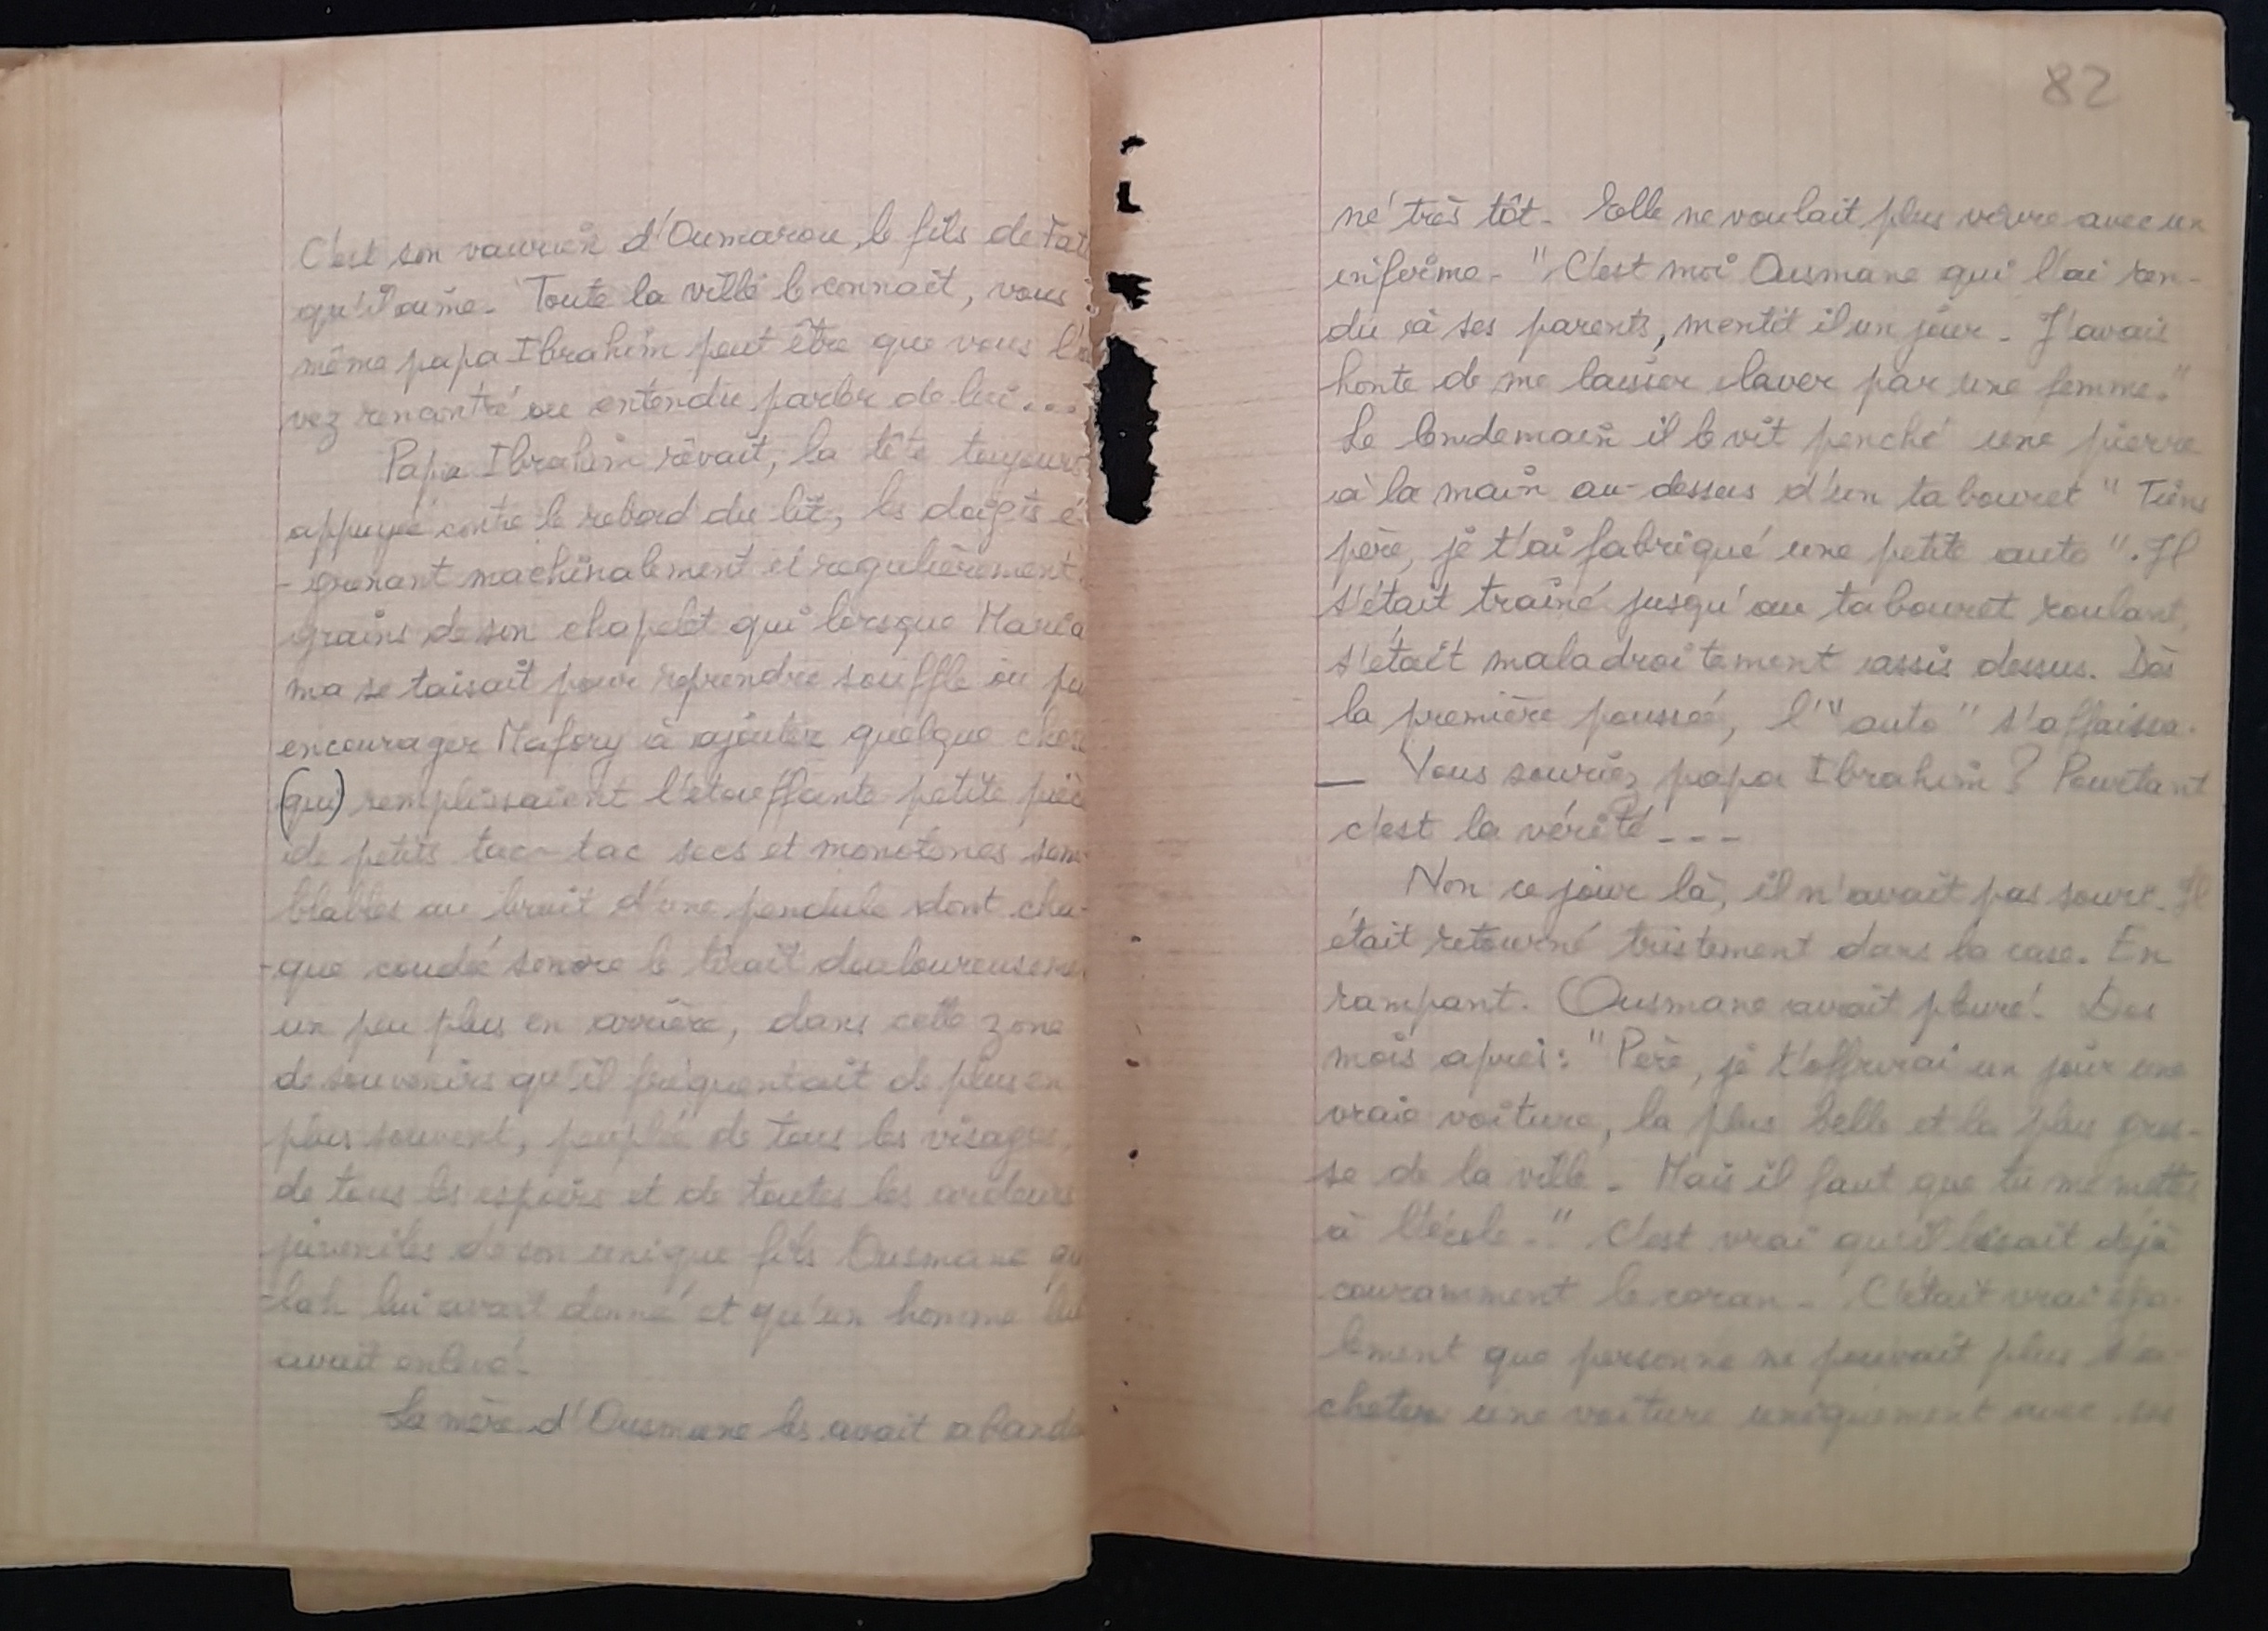 C'est son vaurien d'Oumarou, le fils de Fat
qu'il aime. Toute la ville le connait, vous
même papa Ibrahim peut être que vous l'a
vez rencontré ou entendu parler de lui...
Papa Ibrahim rêvait, la tête toujours
appuyée contre le rebord du lit, les doigts é
-grenant machinalement et regulièrement
grains de son chapelet qui lorsque Maria
ma se taisait pour reprendre souffle ou pu
encourager Mafory à ajouter quelque chose
(qui) remplissaient l'étouffante petite pièc
de petits tac-tac secs et monotones sem
blables au bruit d'une pendule dont cha-
-que coudé sonore le tirait douloureuseme
un peu plus en arrière, dans cette zone
de souvenirs qu'il fréquentait de plus en
plus souvent, peuplée de tous les visages,
de tous les espoirs et de toutes les ardeurs
juveniles de son unique fils Ousmane qu
-lah lui avait donné et qu'un homme lui
avait enlevé.
La mère d'Ousmane les avait abando
82
né très tôt. Elle ne voulait plus vivre avec un
infirme. "C'est moi Ousmane qui l'ai ren-
du à ses parents, mentit il un jour. J'avais
honte de me laisser laver par une femme."
Le lendemain il le vit penché une pierre
à la main au-dessus d'un tabouret "Tiens
père, je t'ai fabriqué une petite auto". Il
s'était trainé jusqu'au tabouret roulant,
s'était maladroitement assis dessus. Dès
la première poussée, l'"auto" s'affaissa.
— Vous souriez papa Ibrahim ? Pourtant
c'est la vérité ---
Non ce jour là, il n'avait pas souri. Il
était retourné tristement dans la case. En
rampant. Ousmane avait pleuré. Des
mois après : "Père, je t'offrirai un jour une
vraie voiture, la plus belle et la plus gros-
se de la ville. Mais il faut que tu me mettes
à l'école." C'est vrai qu'il lisait déjà
couramment le coran. C'était vrai éga-
lement que personne ne pouvait plus s'a-
cheter une voiture uniquement avec ses